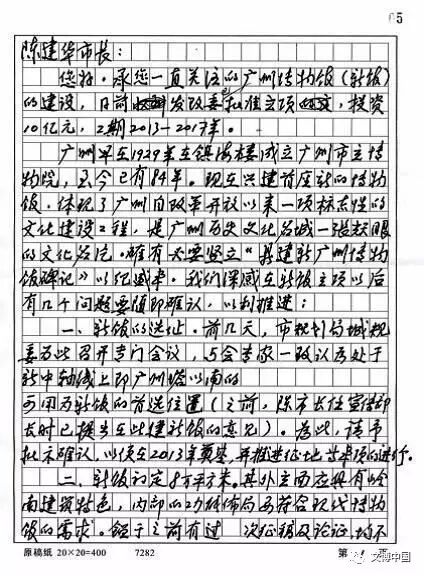 05
陈建华市长：
您好。承您一直关注的广州博物馆（新馆）
的建设，日前已发改委批准立项，投资
10亿元，工期2013—2017年。
广州早在1929年在镇海楼成立广州市立博
物院，至今已有84年。现在兴建首座新的博物
馆，体现了广州自改革开放以来一项标志性的
文化建设工程，是广州历史文化名城一张靓眼
的文化名片。确有必要竖立《兴建新广州博物
馆碑记》以纪盛举。我们深感在新馆立项以后
有几个问题要值即确认，以利推进：
一、新馆的选址。前几天，市规划局城规
委为此召开专门会议，与会专家一致认为处于
新中轴线上即广州塔以南的
可用为新馆的首选位置（之前，陈市长任宣传部
长时已提出在此建新馆的意见）。为此，请予
批示确认，以便在2013年奠基，并推进征地等事项的进行。
二、新馆约定8万平方米。其外立面应具有岭
南建筑特色，内部的功能布局要符合现代博物
馆的需求。鉴于之前有过 次征稿及论证，均不
原稿纸 20×20=400 7282 第 页
文博中国